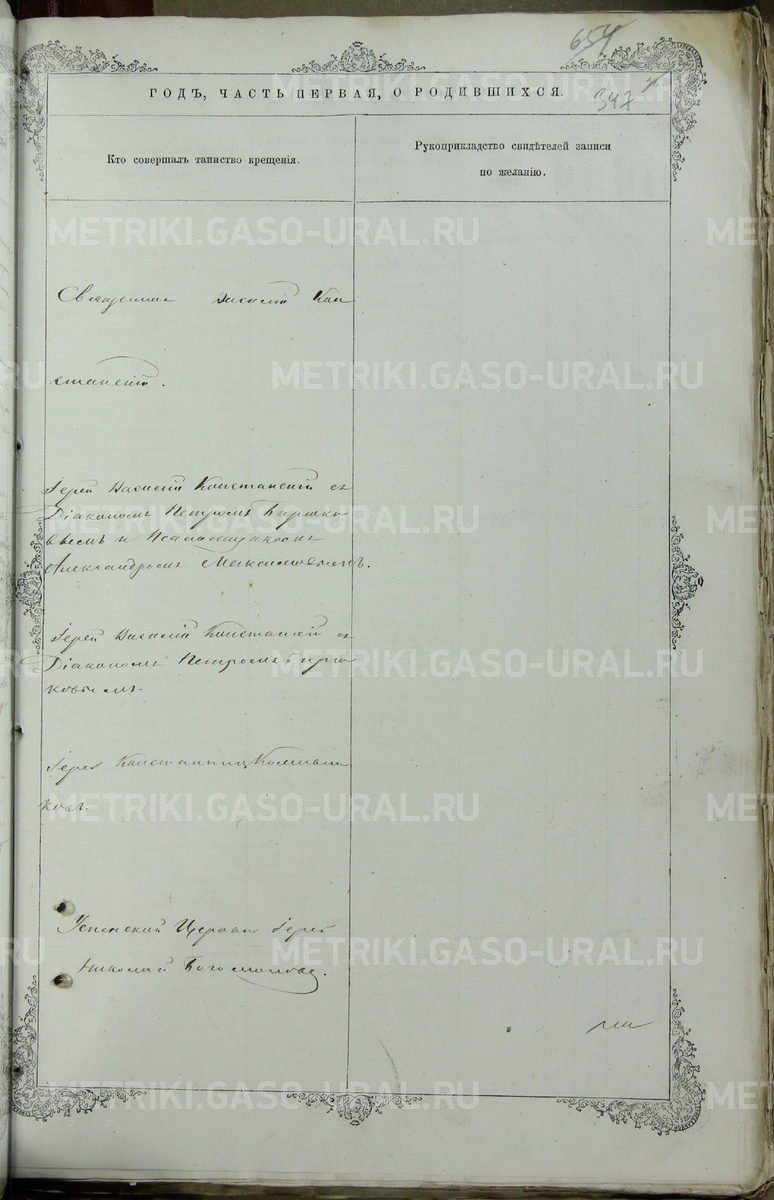 654
347
ГОДЪ, ЧАСТЬ ПЕРВАЯ, О РОДИВШИХСЯ.
Кто совершалъ таинство крещенія.
Рукоприкладство свидѣтелей записи
по желанію.
METRIKI.GASO-URAL.RU
Священникъ Василій Кон
стансій.
METRIKI.GASO-URAL.RU
Іерей Василій Констансій съ
Діакономъ Петромъ Бирюко
вымъ и Псаломщикомъ
METRIKI.GASO-URAL.RU
Александромъ
Іерей Василій Констансій съ
Діакономъ Петромъ Бирю
METRIKI.GASO-URAL.RU
ковымъ.
Іерей Константинъ
ковъ.
METRIKI.GASO-URAL.RU
Успенской Церкви Іерей
METRIKI.GASO-URAL.RU
Николай Богомоловъ.
METRIKI.GASO-URAL.RU